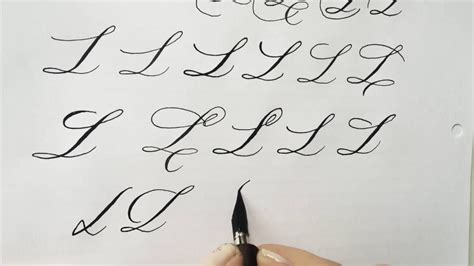 L L L
L L L L L L
L L L L L
L L